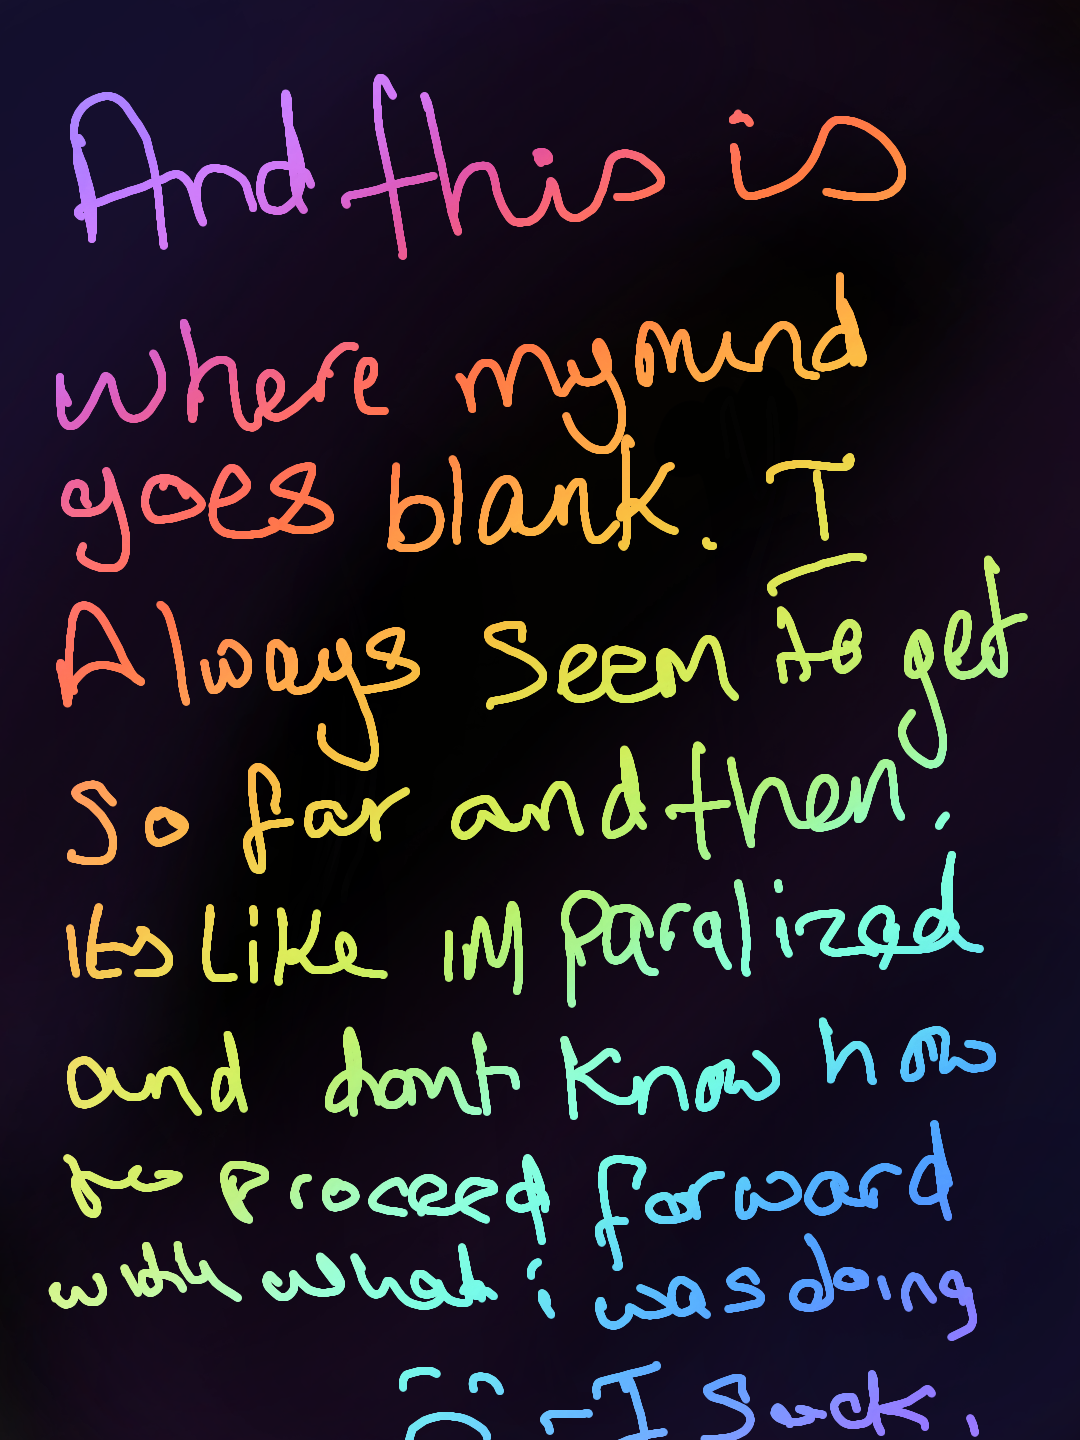 And this is
where my mind
goes blank. I
Always seem to get
so far and then.
Its Like IM Paralized
and dont know how
to proceed forward
with what i was doing
-I Suck.